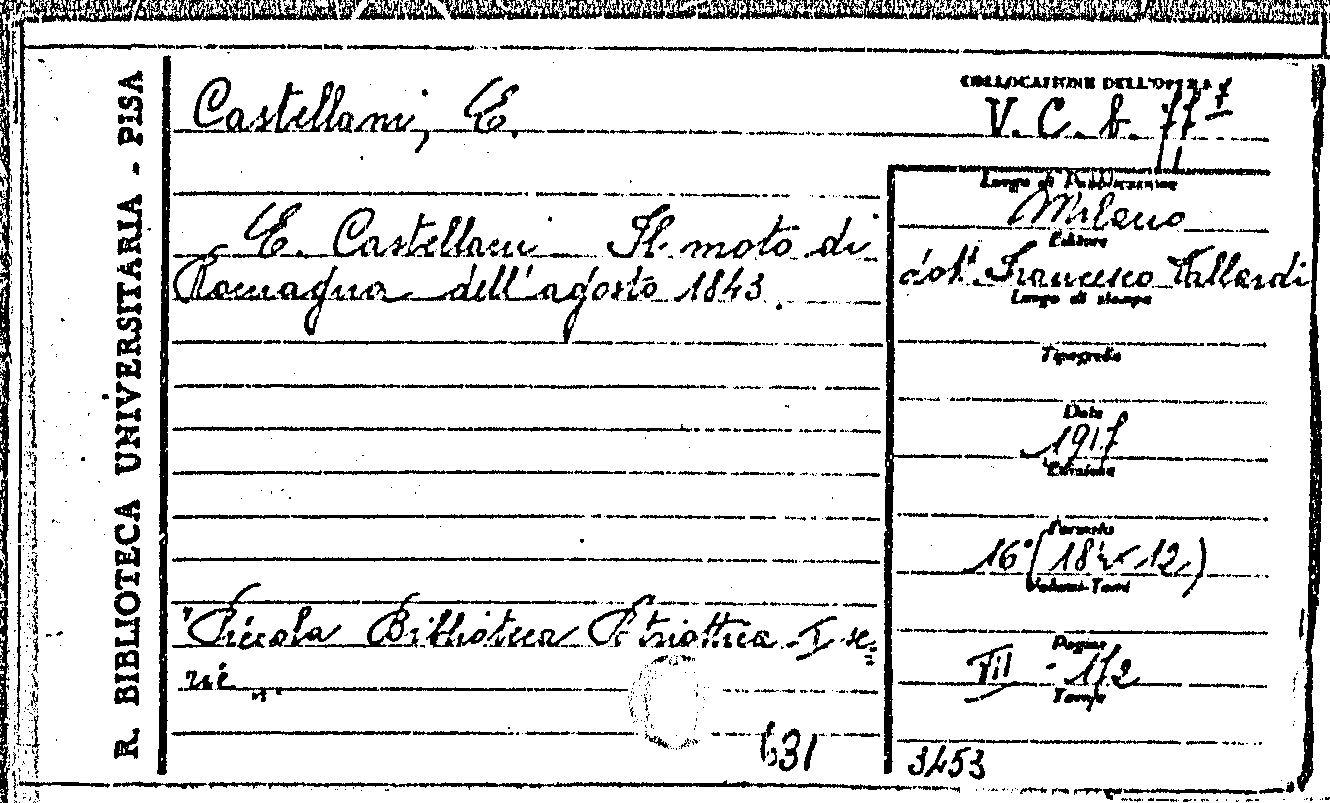 R. BIBLIOTECA UNIVERSITARIA - PISA
COLLOCAZIONE DELL'OPERA
Castellani, E.
V. C. b. 77 7
Luogo di Pubblicazione
Milano
E. Castellani Il moto di
Editore
Romagna dell'agosto 1843.
dott. Francesco Vallardi
Luogo di stampa
Tipografia
Data
1917
Edizione
Formato
16° (18½ × 12)
Volumi-Tomi
"Piccola Biblioteca Patriottica I se=
Pagine
rie".
VII - 172
Tavole
631
3453